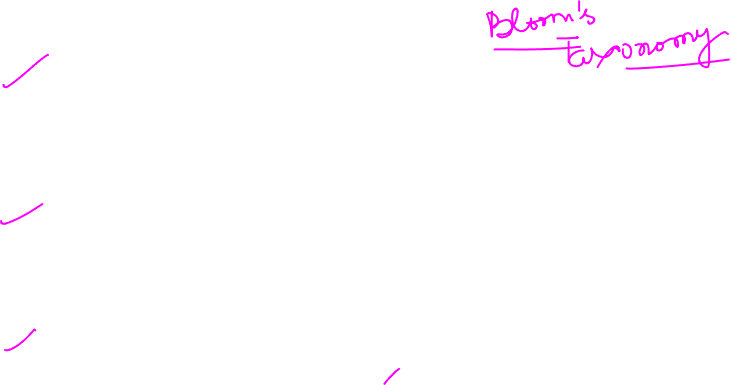 Bloom's
taxonomy